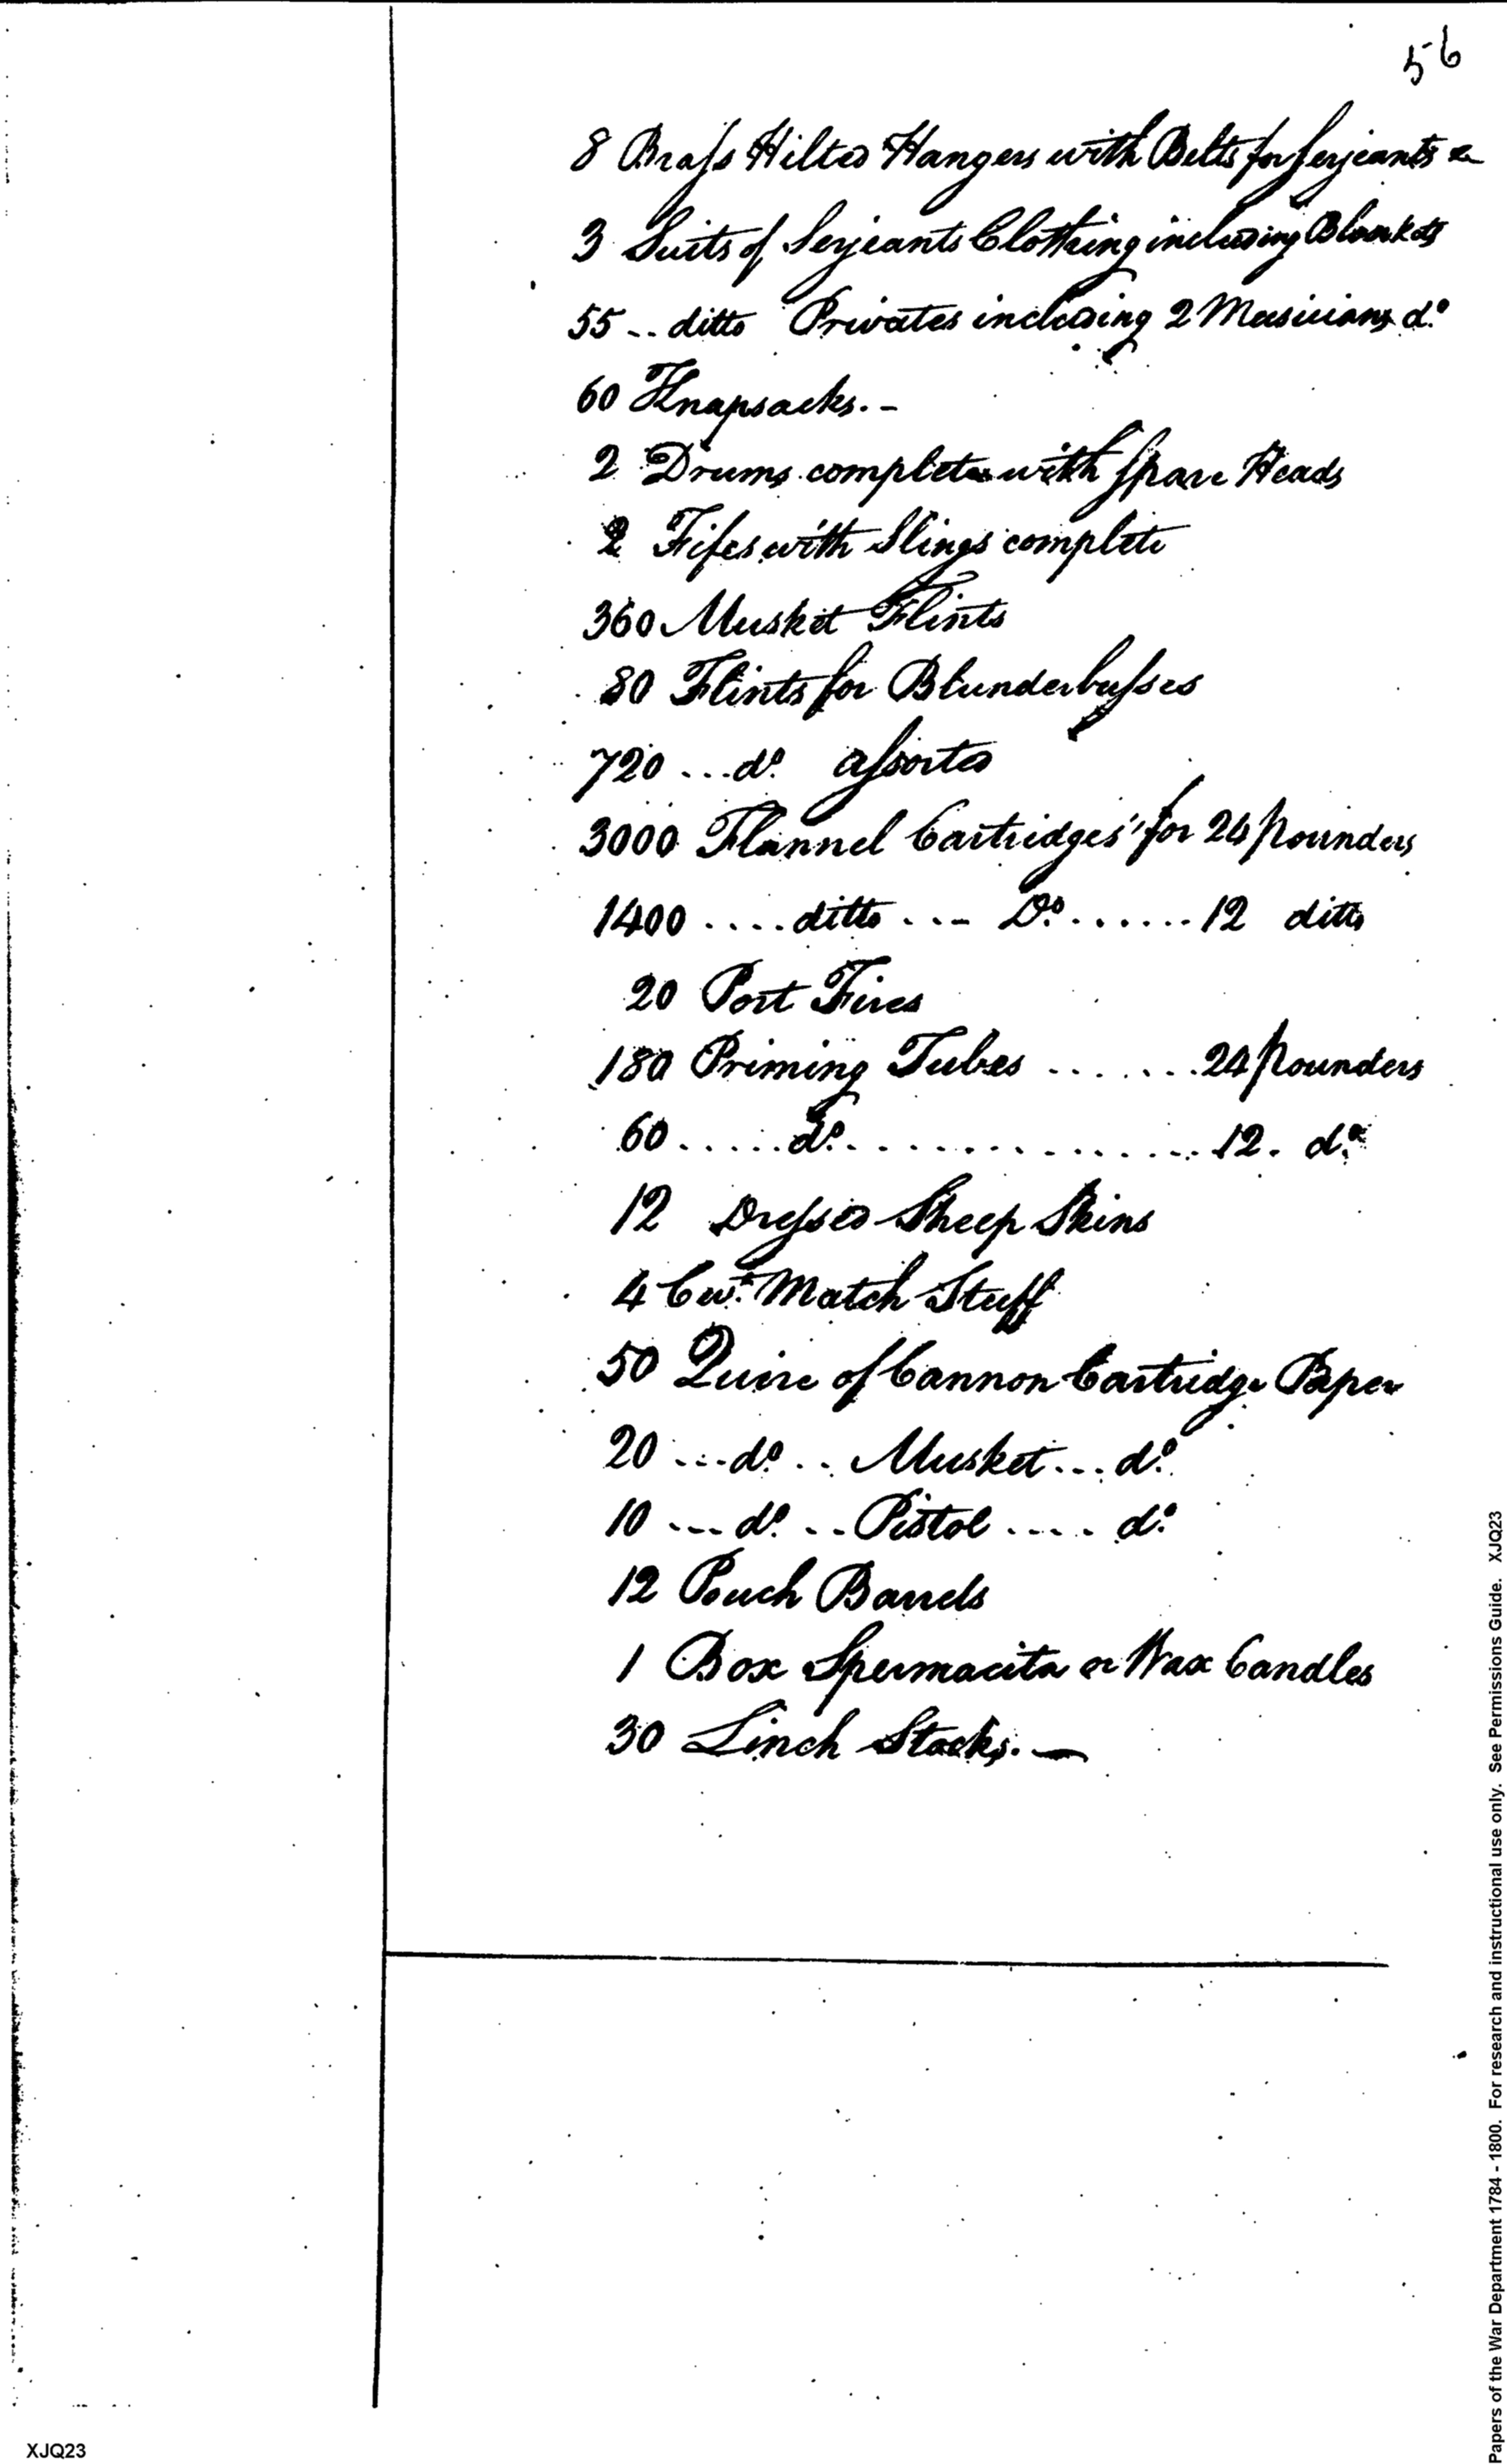 56
8 Brass Hilted Hangers with Belts for Serjeants &
3 Suits of Serjeants Clothing including Blankets
55 .. ditto Privates including 2 Musicians do.
60 Knapsacks. -
2 Drums complete with Spare Heads
2 Fifes with Slings complete
360 Musket Flints
80 Flints for Blunderbusses
720 ... do. assorted
3000 Flannel Cartridges for 24 Pounders
1400 .... ditto ... Do. ...... 12 ditto
20 Port Fires
180 Priming Tubes ....... 24 Pounders
60 ..... do. ................ 12. do.
12 Dressed Sheep Skins
4 Cwt. Match Stuff
50 Quire of Cannon Cartridge Paper
20 ... do. .. Musket ... do.
10 ... do. .. Pistol .... do.
12 Pouch Barrels
1 Box Spermacita or Wax Candles
30 Linch Stocks. —
Papers of the War Department 1784 - 1800. For research and instructional use only. See Permissions Guide. XJQ23
XJQ23